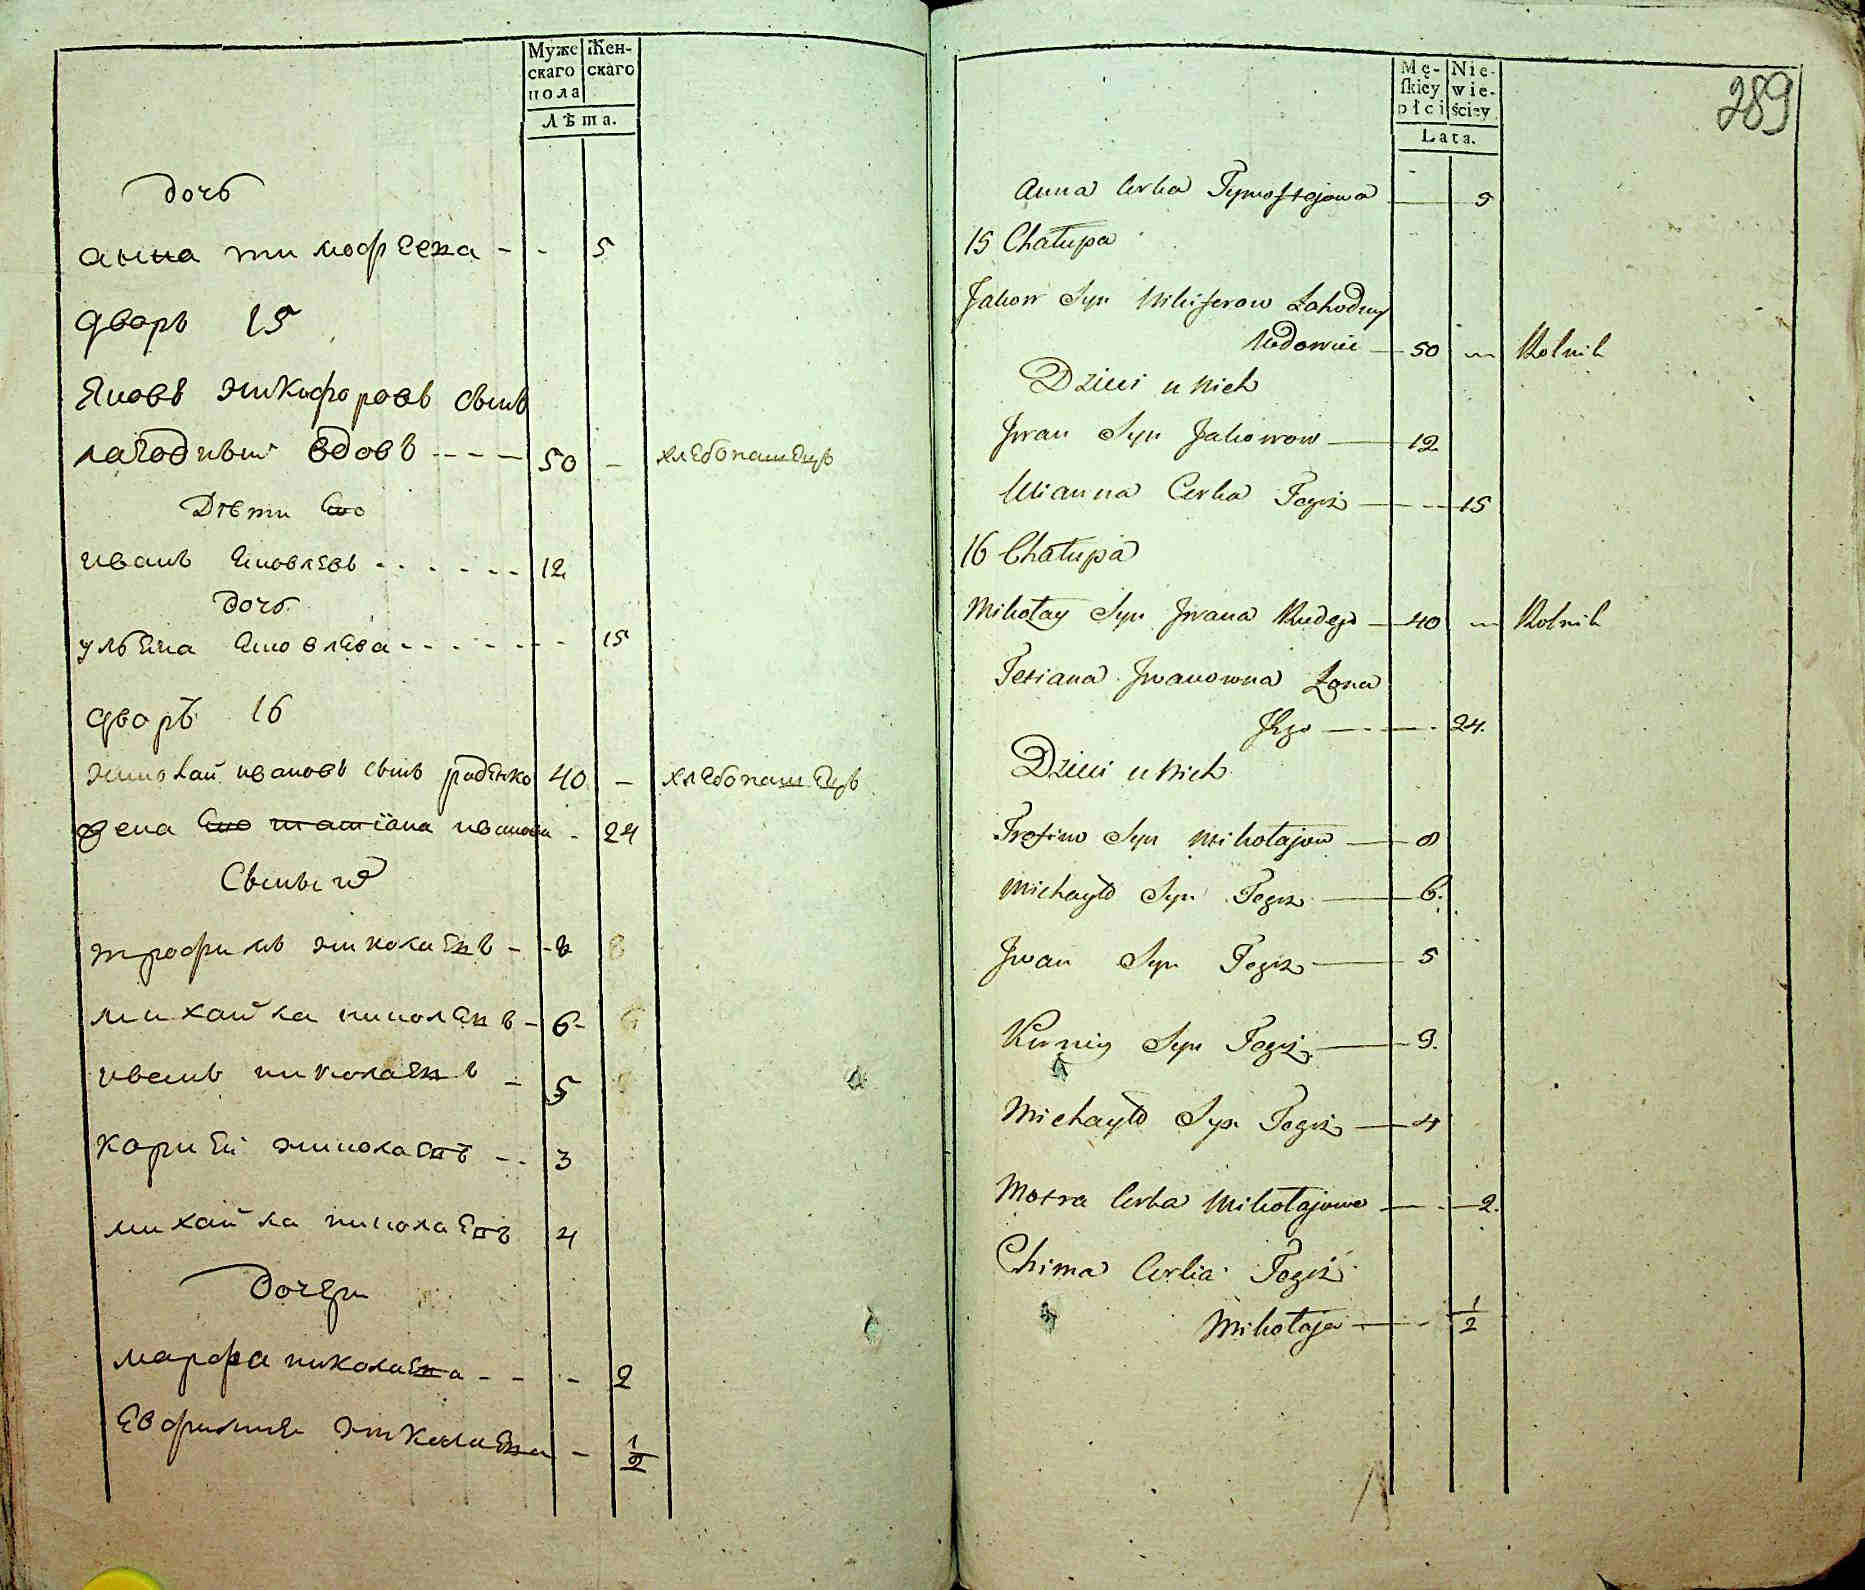 Муже Жен-
скаго скаго
пола
Лѣта.
дочь
анна тимофеева - - 5
дворъ 15
Яковъ никифоровъ сынъ
лагодный вдовъ - - - - 50 - хлебопашецъ
Дѣти Его
иванъ Яковлевъ - - - - - - 12
дочь
ульяна Яковлева - - - - - - 15
дворъ 16
николай ивановъ сынъ руденко 40 - хлебопашецъ
жена Его татіана иванова - 24
Сыновья
трофимъ николаевъ - - 8
михайла николаевъ - 6 -
иванъ николаевъ - 5
корней николаевъ - - 3
михайла николаевъ 4
дочери
марфа николаева - - - 2
Евфимия николаева - 1/2
Mę- Nie-
ſkiey wie-
płci ściey
Lata.
289
Anna Corka Tymofiejowa 5
15 Chałupa
Jakow Syn Nikiferow Łahodny
Wdowiec 50 Rolnik
Dzieci u nich
Jwan Syn Jakowow 12
Ulianna Corka Tegoż 15
16 Chałupa
Mikołay Syn Jwana Rudego 40 Rolnik
Tetiana Jwanowna Żona
Jego 24.
Dzieci u nich
Trofim Syn Mikołajow 8
Michayło Syn Tegoż 6.
Jwan Syn Tegoż 5
Kurniey Syn Tegoż 3.
Michayło Syn Tegoż 4
Motra Corka Mikołajowa 2.
Chima Corka Tegoż
Mikołaja 1/2